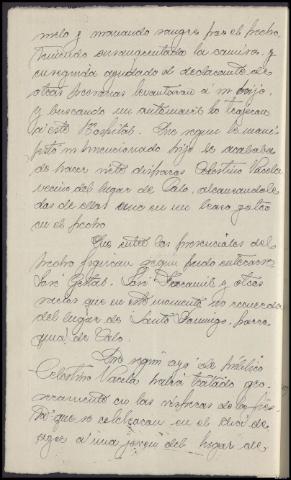 melo y manando sangre por el pecho,
teniendo ensangrentada la camisa, y
enseguida ayudado el declarante de
otras personas levantaron a su hijo,
y buscando un automovil lo trajeron
a este Hospital. Que segun le mani-
festó su mencionado hijo le acababa
de hacer siete disparos Celestino Varela
vecino del lugar de Calo, alcanzandole
dos de ellos uno en un brazo y otro
en el pecho.
Que entre los presenciales del
hecho figuran segun pudo enterarse
José Gestal, José y otros
varios que en este momento no recuerda
del lugar de Santo Domingo, parro-
quia de Calo.
Que segun oyó de público
Celestino Varela había tratado gro-
seramente en las visperas de la fies-
ta que se celebraron en el dia de
ayer a una joven del lugar de,